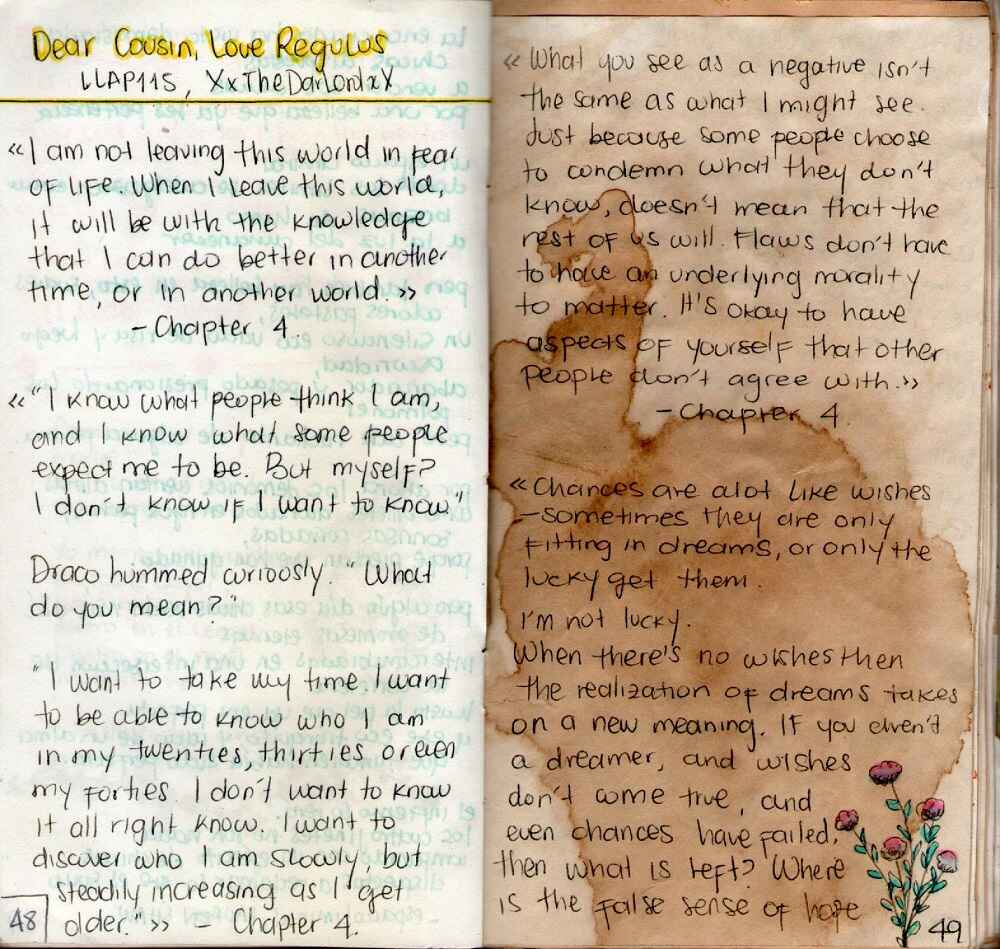 Dear Cousin, Love Regulus
LLAP115, XxTheDarLordxX
«I am not leaving this world in fear
of life. When I leave this world,
it will be with the knowledge
that I can do better in another
time, or in another world.»
- Chapter 4.
«"I know what people think I am,
and I know what some people
expect me to be. But myself?
I don't know if I want to know"
Draco hummed curiously. "What
do you mean?"
"I want to take my time. I want
to be able to know who I am
in my twenties, thirties, or even
my forties. I don't want to know
it all right know. I want to
discover who I am slowly, but
steadily increasing as I get
older."» - Chapter 4.
48
«What you see as a negative isn't
the same as what I might see.
Just because some people choose
to condemn what they don't
know, doesn't mean that the
rest of us will. Flaws don't have
to have an underlying morality
to matter. It's okay to have
aspects of yourself that other
people don't agree with.»
- Chapter 4.
«Chances are alot like wishes
-sometimes they are only
fitting in dreams, or only the
lucky get them.
I'm not lucky.
When there's no wishes then
the realization of dreams takes
on a new meaning. If you elven't
a dreamer, and wishes
don't come true, and
even chances have failed,
then what is left? Where
is the false sense of hope
49